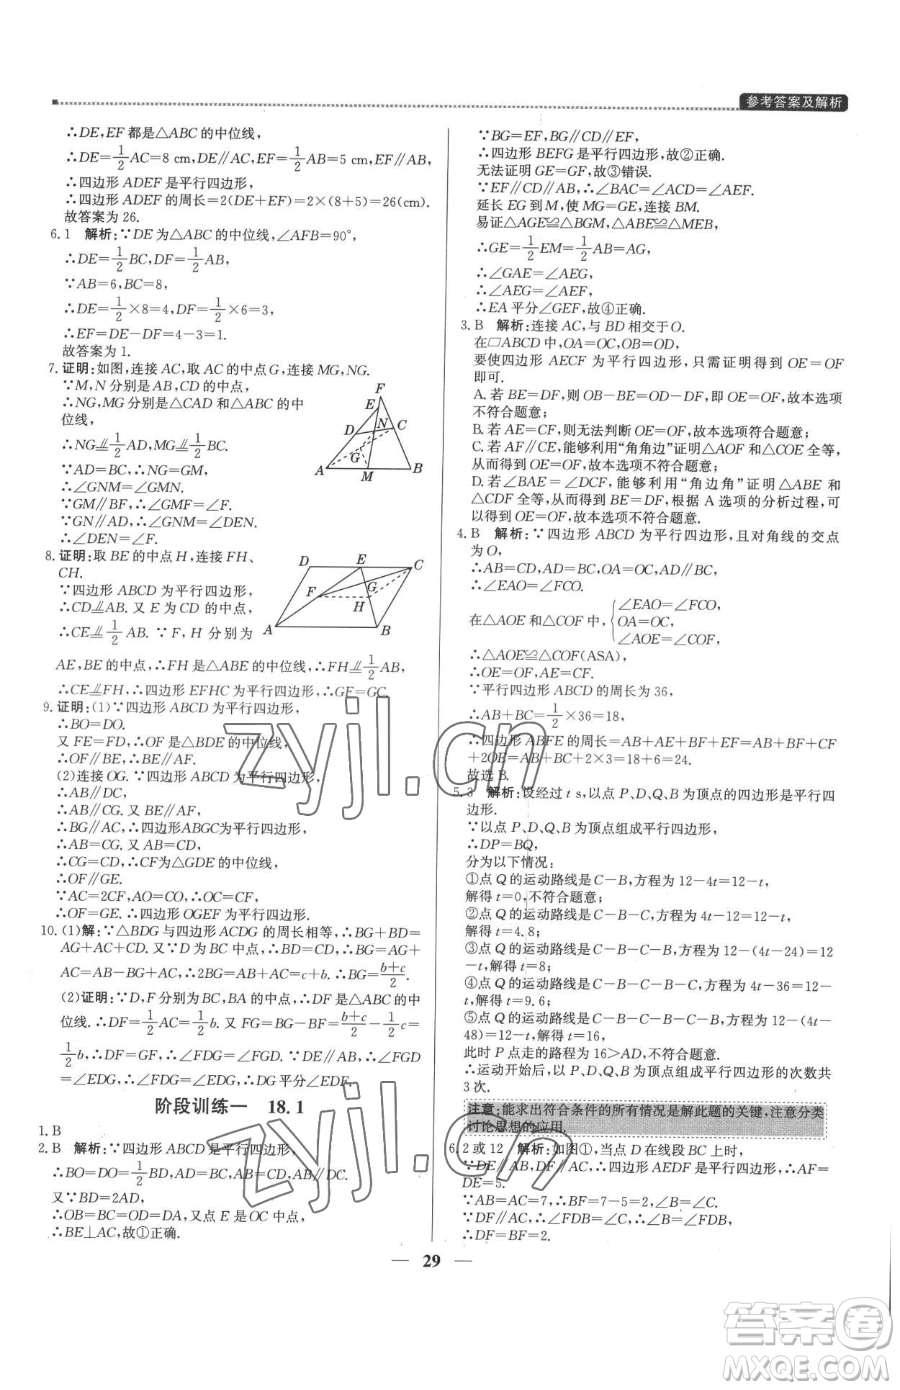 参考答案及解析
∴DE,EF 都是△ABC 的中位线,
∴DE=1/2AC=8 cm,DE∥AC,EF=1/2AB=5 cm,EF∥AB,
∴四边形 ADEF 是平行四边形,
∴四边形 ADEF 的周长=2(DE+EF)=2×(8+5)=26(cm).
故答案为 26.
6.1 解析:∵DE 为△ABC 的中位线,∠AFB=90°,
∴DE=1/2BC,DF=1/2AB,
∵AB=6,BC=8,
∴DE=1/2×8=4,DF=1/2×6=3,
∴EF=DE-DF=4-3=1.
故答案为 1.
7.证明:如图,连接 AC,取 AC 的中点 G,连接 MG,NG.
∵M,N 分别是 AB,CD 的中点,
∴NG,MG 分别是△CAD 和△ABC 的中
位线,
∴NG⫽1/2AD,MG⫽1/2BC.
∵AD=BC,∴NG=MG,
∴∠GNM=∠GMN.
∵GM∥BF,∴∠GMN=∠F.
∵GN∥AD,∴∠GNM=∠DEN.
∴∠DEN=∠F.
F
E
D
N
C
G
A
M
B
8.证明:取 BE 的中点 H,连接 FH,
CH.
∵四边形 ABCD 为平行四边形,
∴CD⫽AB. 又 E 为 CD 的中点,
∴CE⫽1/2AB. ∵F,H 分别为
AE,BE 的中点,∴FH 是△ABE 的中位线,∴FH⫽1/2AB,
∴CE⫽FH,∴四边形 EFHC 为平行四边形,∴GF=GC.
D
E
C
F
G
H
A
B
9.证明:(1)∵四边形 ABCD 为平行四边形,
∴BO=DO.
又 FE=FD,∴OF 是△BDE 的中位线,
∴OF∥BE,∴BE∥AF.
(2)连接 OG. ∵四边形 ABCD 为平行四边形,
∴AB∥DC,
∴AB∥CG. 又 BE∥AF,
∴BG∥AC,∴四边形 ABGC为平行四边形,
∴AB=CG. 又 AB=DC,
∴CG=CD,∴CF为△GDE 的中位线,
∴OF∥GE.
∵AC=2CF,AC=2AO,∴AO=CF,
∴OF=GE. ∴四边形 OGEF 为平行四边形.
10.(1)解:∵△BDG 与四边形 ACDG 的周长相等,∴BG+BD=
AG+AC+CD. 又∵D 为 BC 中点,∴BD=CD,∴BG=AG+
AC=1/2(AB+AC). 又∵AB=c,AC=b,∴BG=(b+c)/2.
(2)证明:∵D,F 分别为 BC,BA 的中点,∴DF 是△ABC 的中
位线.∴DF=1/2AC=1/2b. 又 FG=BG-BF=(b+c)/2-1/2c=
1/2b,∴DF=GF,∴∠FDG=∠FGD. ∵DE∥AB,∴∠FGD
=∠EDG,∴∠FDG=∠EDG,∴DG 平分∠EDF.
阶段训练一 18.1
1.B
2.B 解析:∵四边形 ABCD 是平行四边形,
∴BO=DO=1/2BD,AD=BC,AB=CD,AB∥DC.
又∵BD=2AD,
∴OB=BC=OD=DA,又点 E 是 OC 中点,
∴BE⊥AC,故①正确.
∵BG=EF,BG∥FE,
∴四边形 BEFG 是平行四边形,故②正确.
无法证明 GE=GF,故③错误.
∵EF∥CD∥AB,∴∠BAC=∠ACD=∠AEF.
延长 EG 到 M,使 MG=GE,连接 BM.
易证△AGE≌△BGM,△ABE≌△MEB,
∴GE=1/2EM=1/2AB=AG,
∴∠GAE=∠AEG,
∴∠AEG=∠AEF,
∴EA 平分∠GEF,故④正确.
3.B 解析:连接 AC,与 BD 相交于 O.
在▱ABCD 中,OA=OC,OB=OD,
要使四边形 AECF 为平行四边形,只需证明得到 OE=OF
即可.
A.若 BE=DF,则 OB-BE=OD-DF,即 OE=OF,故本选项
不符合题意;
B.若 AE=CF,则无法判断 OE=OF,故本选项符合题意;
C.若 AF∥CE,能够利用“角角边”证明△AOF 和△COE 全等,
从而得到 OE=OF,故本选项不符合题意;
D.若∠BAE=∠DCF,能够利用“角边角”证明△ABE 和
△CDF 全等,从而得到 BE=DF,根据 A 选项的分析过程,可
以得到 OE=OF,故本选项不符合题意.
4.B 解析:∵四边形 ABCD 为平行四边形,且对角线的交点
为 O,
∴AB=CD,AD=BC,OA=OC,AD∥BC,
∴∠EAO=∠FCO.
在△AOE 和△COF 中,{∠EAO=∠FCO, OA=OC, ∠AOE=∠COF,
∴△AOE≌△COF(ASA),
∴OE=OF,AE=CF.
∵平行四边形 ABCD 的周长为 36,
∴AB+BC=1/2×36=18,
∴四边形 ABFE 的周长=AB+AE+BF+EF=AB+BF+CF
+2OE=AB+BC+2×3=18+6=24.
故选 B.
5.3 解析:设经过 t s,以点 P、D、Q、B 为顶点的四边形是平行四
边形.
∵以点 P、D、Q、B 为顶点组成平行四边形,
∴DP=BQ,
分为以下情况:
①点 Q 的运动路线是 C-B,方程为 12-4t=12-t,
解得 t=0,不符合题意;
②点 Q 的运动路线是 C-B-C,方程为 4t-12=12-t,
解得 t=4.8;
③点 Q 的运动路线是 C-B-C-B,方程为 12-(4t-24)=12
-t,解得 t=8;
④点 Q 的运动路线是 C-B-C-B-C,方程为 4t-36=12-
t,解得 t=9.6;
⑤点 Q 的运动路线是 C-B-C-B-C-B,方程为 12-(4t-
48)=12-t,解得 t=16,
此时 P 点走的路程为 16>AD,不符合题意.
∴运动开始后,以 P、D、Q、B 为顶点组成平行四边形的次数共
3 次.
注意:能求出符合条件的所有情况是解此题的关键,注意分类
讨论思想的应用.
6.2 或 12 解析:如图①,当点 D 在线段 BC 上时,
∵DE∥AB,DF∥AC,∴四边形 AEDF 是平行四边形,∴AF=
DE=5.
∵AB=AC=7,∴BF=7-5=2,∠B=∠C.
∵DF∥AC,∴∠FDB=∠C,∴∠B=∠FDB,
∴DF=BF=2.
29
zyjl.cn
zyjl.cn
作业精灵
MXQE.COM